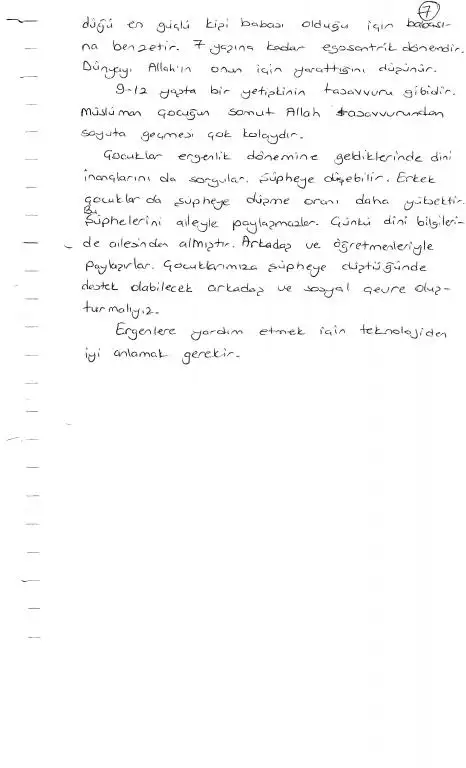 7
düğü en güçlü kişi babası olduğu için babası-
na benzetir. 7 yaşına kadar egosantrik dönemdir.
Dünyayı Allah'ın onun için yarattığını düşünür.
9-12 yaşta bir yetişkinin tasavvuru gibidir.
Müslüman çocuğun somut Allah tasavvurundan
soyuta geçmesi çok kolaydır.
Çocuklar ergenlik dönemine geldiklerinde dini
inançlarını da sorgular. Şüpheye düşebilir. Erkek
çocuklar da şüpheye düşme oranı daha yüksektir.
Bu
Şüphelerini aileyle paylaşmazlar. Çünkü dini bilgileri-
de ailesinden almıştır. Arkadaş ve öğretmenleriyle
Paylaşırlar. Çocuklarımıza şüpheye düştüğünde
destek olabilecek arkadaş ve sosyal çevre oluş-
turmalıyız.
Ergenlere yardım etmek için teknolojiden
iyi anlamak gerekir.